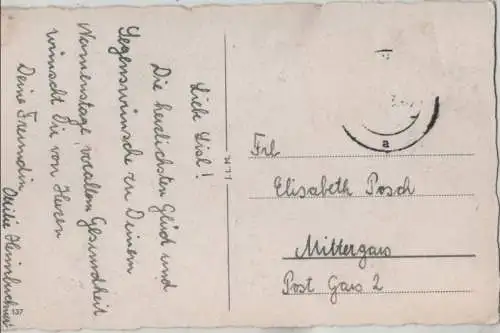 Liebe Lisl!
Die herzlichsten Glück und
Segenswünsche zu Deinem
Namenstage, vorallem Gesundheit
wünscht Dir von Herzen
Deine Freundin
Frl
Elisabeth Posch
Mittergars
Post Gars 2
a
137